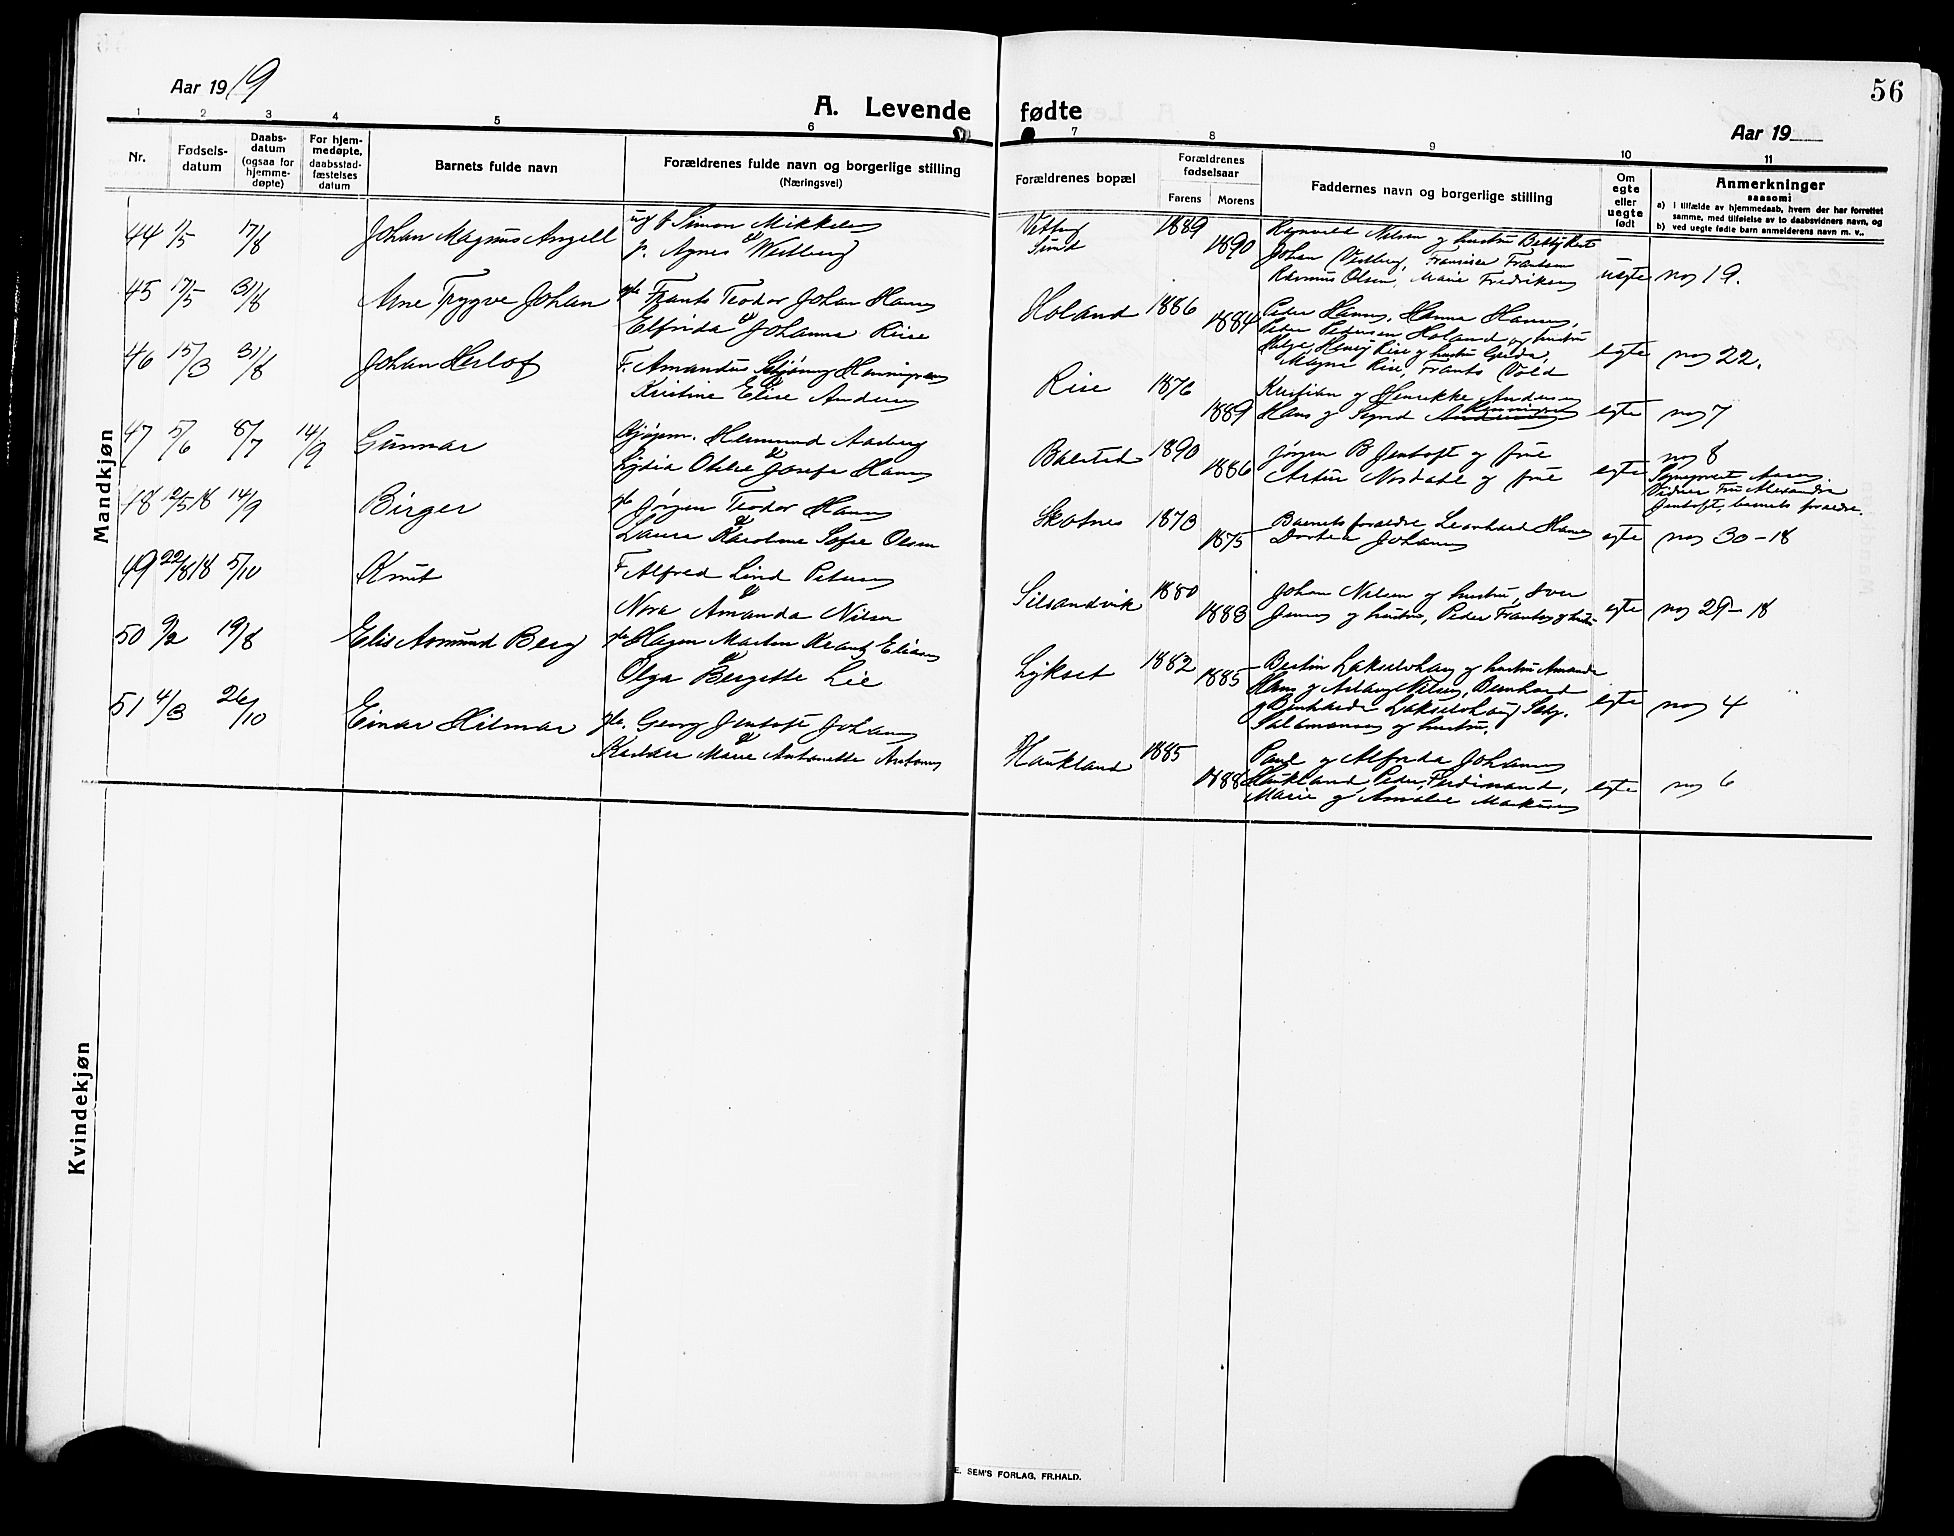 Aar 1919
A. Levende fødte
56
Aar 19
1 2 3 4 5 6 7 8 9 10 11
Nr.
Fødsels-
datum
Daabs-
datum
(ogsaa for
hjemme-
døpte)
For hjem-
medøpte,
daabsstad-
fæstelses
datum
Barnets fulde navn
Forældrenes fulde navn og borgerlige stilling
(Næringsvei)
Forældrenes bopæl
Forældrenes
fødselsaar
Farens Morens
Faddernes navn og borgerlige stilling
Om
egte
eller
uegte
født
Anmerkninger
saasom:
a) i tilfælde av hjemmedaab, hvem der har forrettet
samme, med tilføielse av to daabsvidners navn, og
b) ved uegte fødte barn anmelderens navn m. v.
Mandkjøn
44 17/8 Johan Magnus Angell ug f Simon Mikkelsen
p. Agnes Westberg
1889
1890
Reynold Nilsen og hustru
Johan Vestberg, Fransisca Frantsen
Rasmus Olsen, Marie Fredriksen
uegte no 19.
45 17/5 31/8 Arne Trygve Johan Frants Teodor Johan Hansen
Elfrida Johanna Riise
Holand 1886
1884
Peder Hansen, Hanna Hansen,
Peder Pedersen Holand og hustru
Helge Henry Rise og hustru Gerda,
Magne Rise, Frants Vold
egte no 22.
46 15/3 31/8 Johan Herlof F. Amandus Henningsen
Kristine Elise Andersen
Rise 1876
1889
Kristian og Henrikke Andersen
Hans og Signe Henningsen
egte no 7
47 5/6 8/7 14/9 Gunnar Hermund Aasberg
Lydia Otelie Josefa Hansen
Balstad 1890
1886
Jørgen B Jentoft og frue
Artur Nordahl og frue
egte no 8
Sogneprest
Vidner Fru Alexandra
Jentoft, barnets foreldre.
48 12/5 18 14/9 Birger Jørgen Teodor Hansen
Laura Karoline Sofie Olsen
Skotnes 1873
1875
Barnets foreldre, Leonhard Hansen
Dortea Johansen
egte no 30-18
49 22/8 18 5/10 Knut F Alfred Lind Petersen
Nora Amanda Nilsen
Silsandvik 1880
1883
Johan Nilsen og hustru, Iver
Jensen og hustru, Peder Frantsen og hustru
egte no 29-18
50 9/2 19/8 Elis Asmund Berg Hagen Martin Krantz Eliasen
Olga Bergette Lie
Lykset 1882
1885
Bertin Lakselvhaug og hustru Amanda
Hans og Aslaug Nilsen, Bernhard
og Bernharda Lakselvhaug
Salamonsen og hustru.
egte no 4
51 4/3 26/10 Einar Hilmar Georg Jentoft Johansen
Marie Antonette Antonsen
Haukland 1885
1888
Paul og Alfrida Johansen
Haukland, Peder, Ferdinand,
Marie og Amalie Markussen
egte no 6
Kvindekjøn
E. SEM'S FORLAG, FR.HALD.